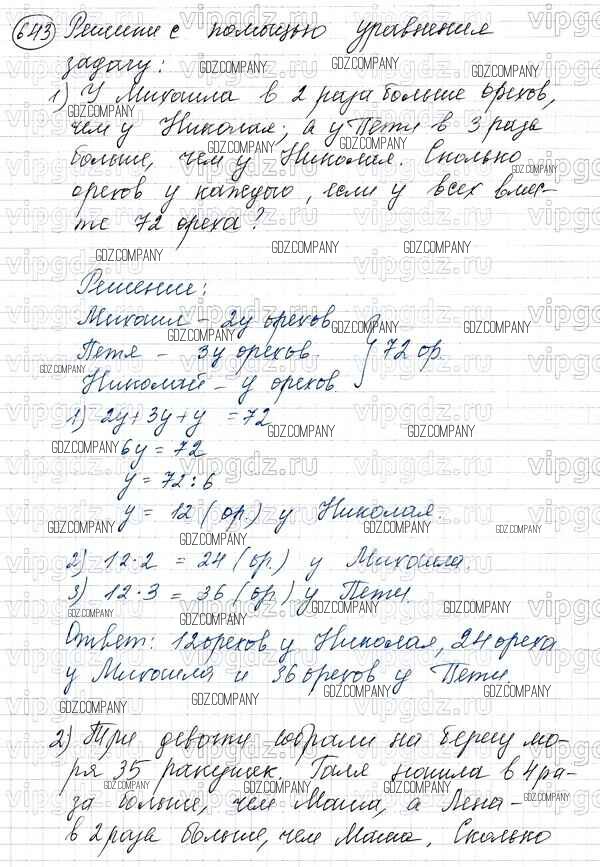 643 Решите с помощью уравнения
задачу:
1) У Михаила в 2 раза больше орехов,
чем у Николая, а у Пети в 3 раза
больше, чем у Николая. Сколько
орехов у каждого, если у всех вмес-
те 72 ореха?
Решение:
Михаил - 2y орехов
Петя - 3y орехов. } 72 ор.
Николай - y орехов.
1) 2y + 3y + y = 72
6y = 72
y = 72 : 6
y = 12 (ор.) у Николая.
2) 12 · 2 = 24 (ор.) у Михаила.
3) 12 · 3 = 36 (ор.) у Пети.
Ответ: 12 орехов у Николая, 24 ореха
у Михаила и 36 орехов у Пети.
2) Три девочки собрали на берегу мо-
ря 35 ракушек. Галя нашла в 4 ра-
за больше, чем Маша, а Лена -
в 2 раза больше, чем Маша. Сколько